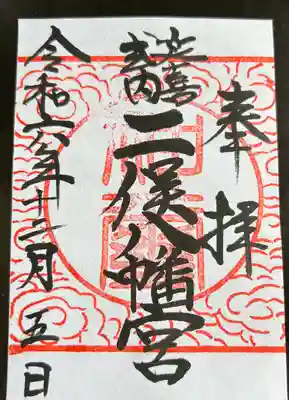 奉拝
式内
二俣八幡宮
令和六年十二月五日